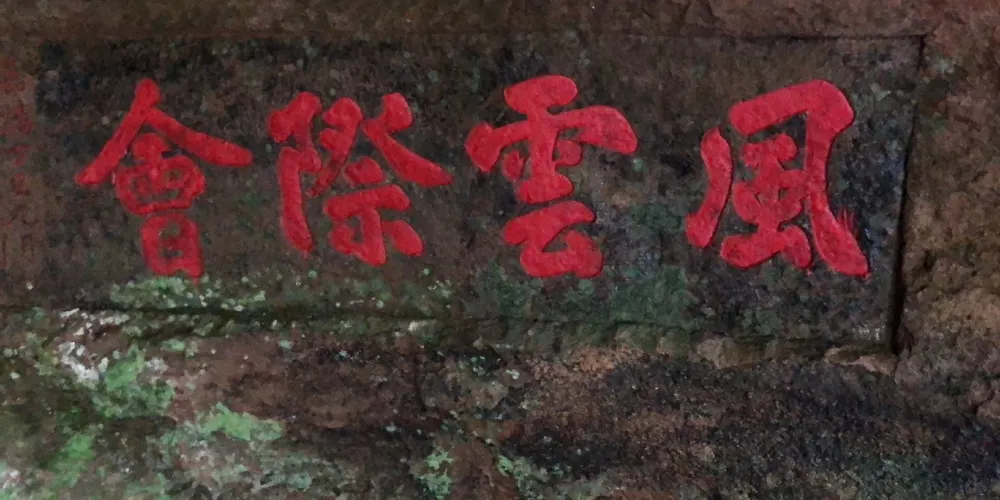 風雲際會